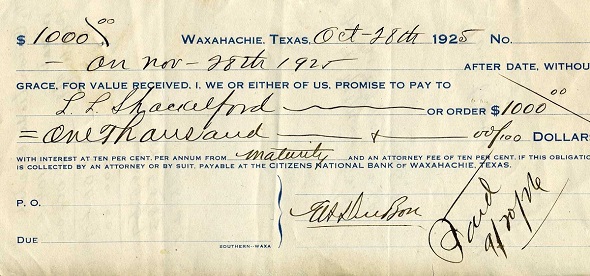 $ 1000 00 WAXAHACHIE, TEXAS, Oct-28th 1925 No.
- On nov-28th 1925 AFTER DATE, WITHOU
GRACE, FOR VALUE RECEIVED, I, WE OR EITHER OF US, PROMISE TO PAY TO
L. L. Shackelford OR ORDER $ 1000 00
= One Thousand & 00/100 DOLLARS
WITH INTEREST AT TEN PER CENT. PER ANNUM FROM maturity AND AN ATTORNEY FEE OF TEN PER CENT. IF THIS OBLIGATIO
IS COLLECTED BY AN ATTORNEY OR BY SUIT. PAYABLE AT THE CITIZENS NATIONAL BANK OF WAXAHACHIE, TEXAS.
P. O.
DUE
SOUTHERN--WAXA
Paid